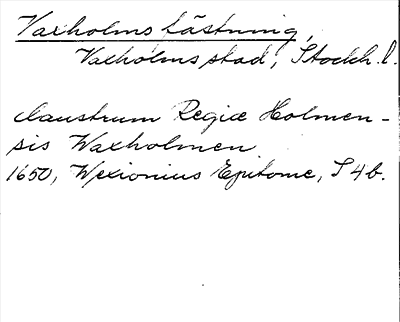 Vaxholms fästning,
Vaxholms stad, Stockh. l.
Claustrum Regiæ Holmen-
sis Waxholmen
1650, Wexionius Epitome, S 4 b.